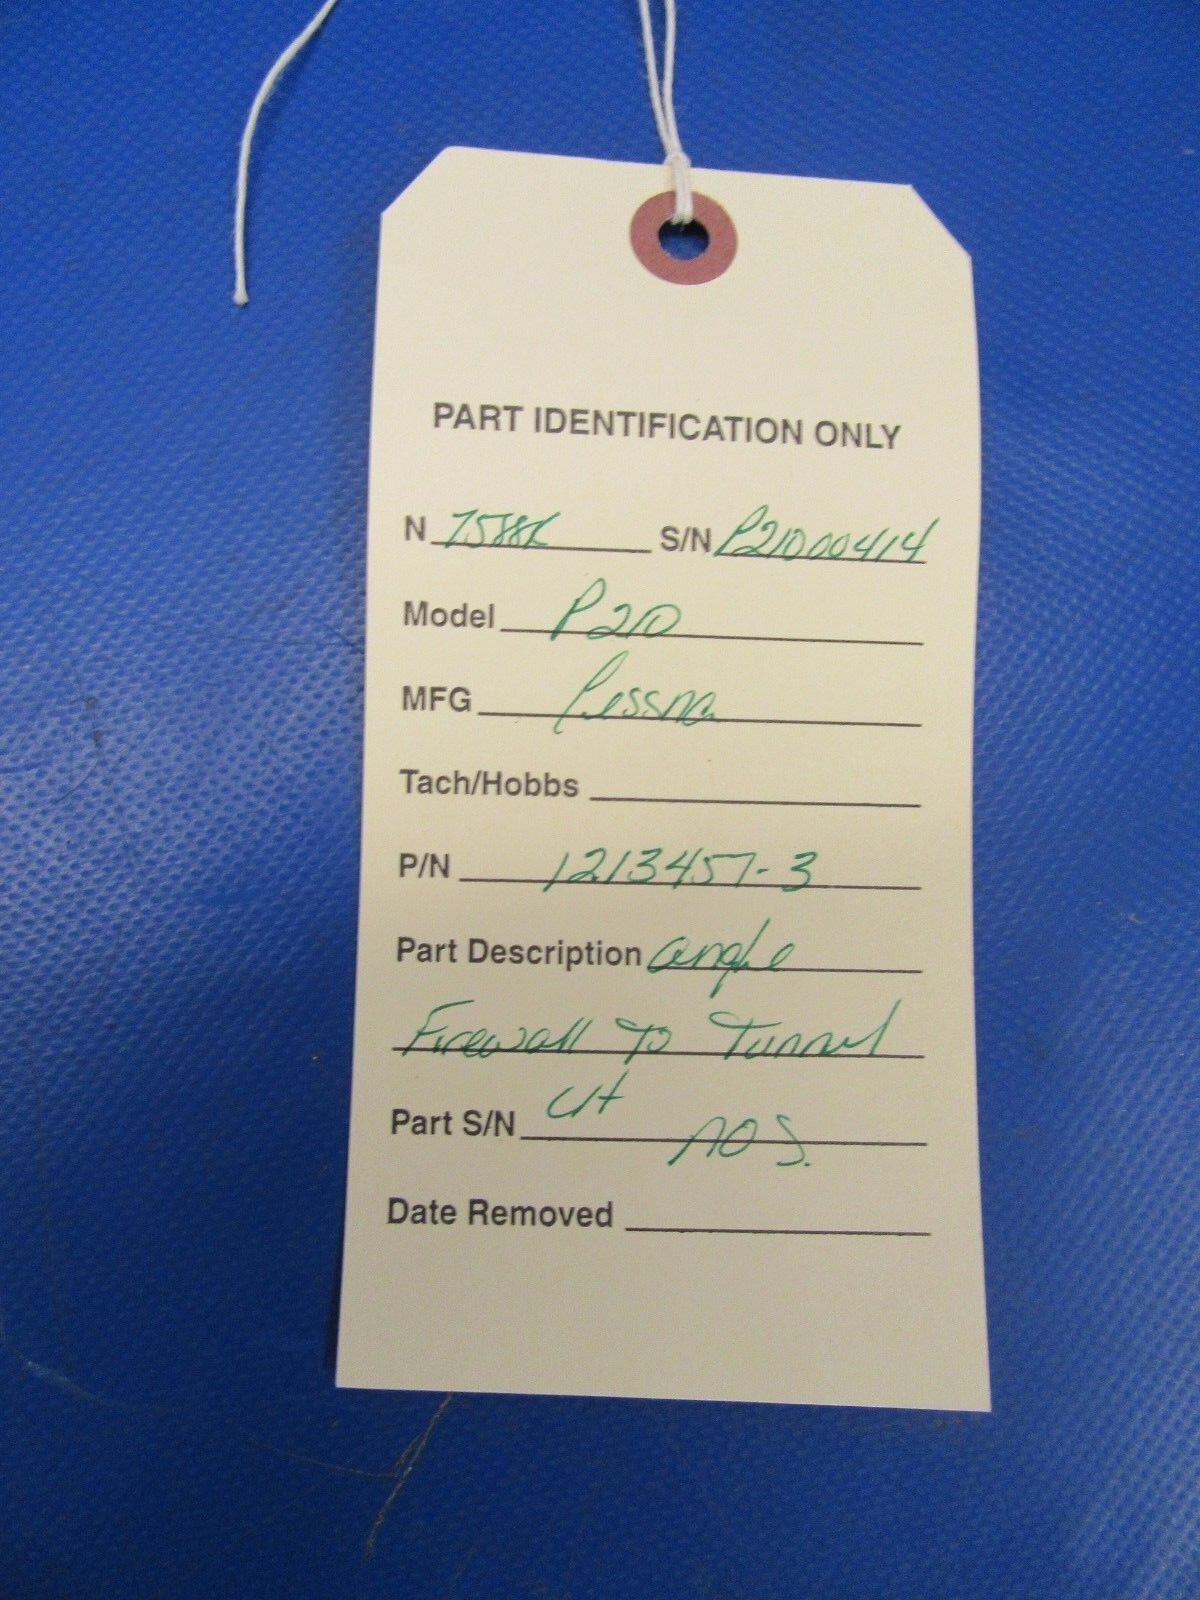 PART IDENTIFICATION ONLY
N 7588K S/N P21000414
Model P210
MFG Cessna
Tach/Hobbs
P/N 1213457-3
Part Description angle
Firewall To Tunnel
LH
Part S/N NOS.
Date Removed